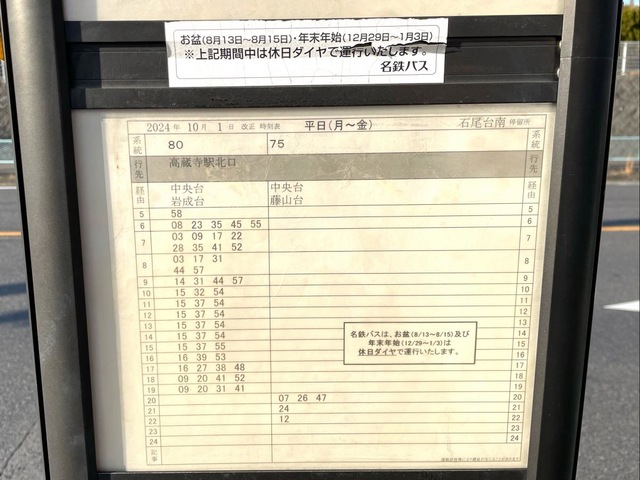 お盆(8月13日～8月15日)・年末年始(12月29日～1月3日)
※上記期間中は休日ダイヤで運行いたします。
名鉄バス
2024年 10月 1日 改正 時刻表 平日(月～金) 石尾台南 停留所
系統 80 75 系統
行先 高蔵寺駅北口 行先
経由 中央台 中央台 経由
岩成台 藤山台
5 58 5
6 08 23 35 45 55 6
7 03 09 17 22 7
28 35 41 52
8 03 17 31 8
44 57
9 14 31 44 57 9
10 15 32 54 10
11 15 37 54 11
12 15 37 54 12
13 15 37 54 13
14 15 37 54 14
15 15 37 55 15
16 16 39 53 16
17 16 27 38 48 17
18 09 20 41 52 18
19 09 20 31 41 19
20 07 26 47 20
21 24 21
22 12 22
23 23
24 24
記事
名鉄バスは、お盆(8/13～8/15)及び
年末年始(12/29～1/3)は
休日ダイヤで運行いたします。